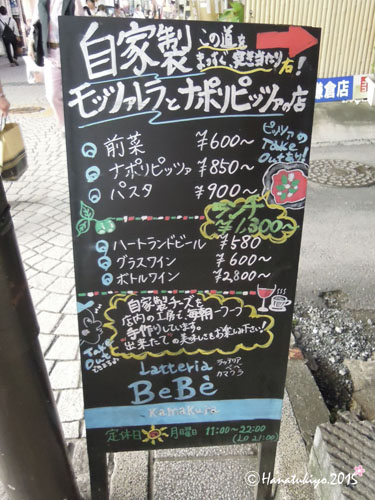 自家製 この道を
まっすぐ 突き当たり
右!
モッツァレラとナポリピッツァの店
鎌倉店
前菜 ¥600〜
ナポリピッツァ ¥850〜
パスタ ¥900〜
ピッツァの
Take
Outあり!
ランチ
¥1,300〜
ハートランドビール ¥580
グラスワイン ¥600〜
ボトルワイン ¥2,800〜
自家製チーズを
店内の工房で、毎朝一つ一つ
手作りしています。
出来たての美味しさをお楽しみ下さい!
Take
Out
Latteria
BeBè
Kamakura
ラッテリア
ベベ
カマクラ
定休日 月曜日 11:00〜22:00
(LO 21:00)
©Hanatukiyo.2015